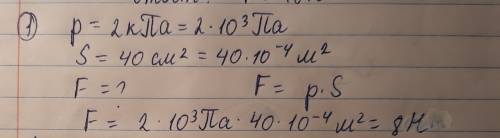 ① p = 2 кПа = 2·10³ Па
S = 40 см² = 40·10⁻⁴ м²
F = ? F = p·S
F = 2·10³ Па · 40·10⁻⁴ м² = 8 Н